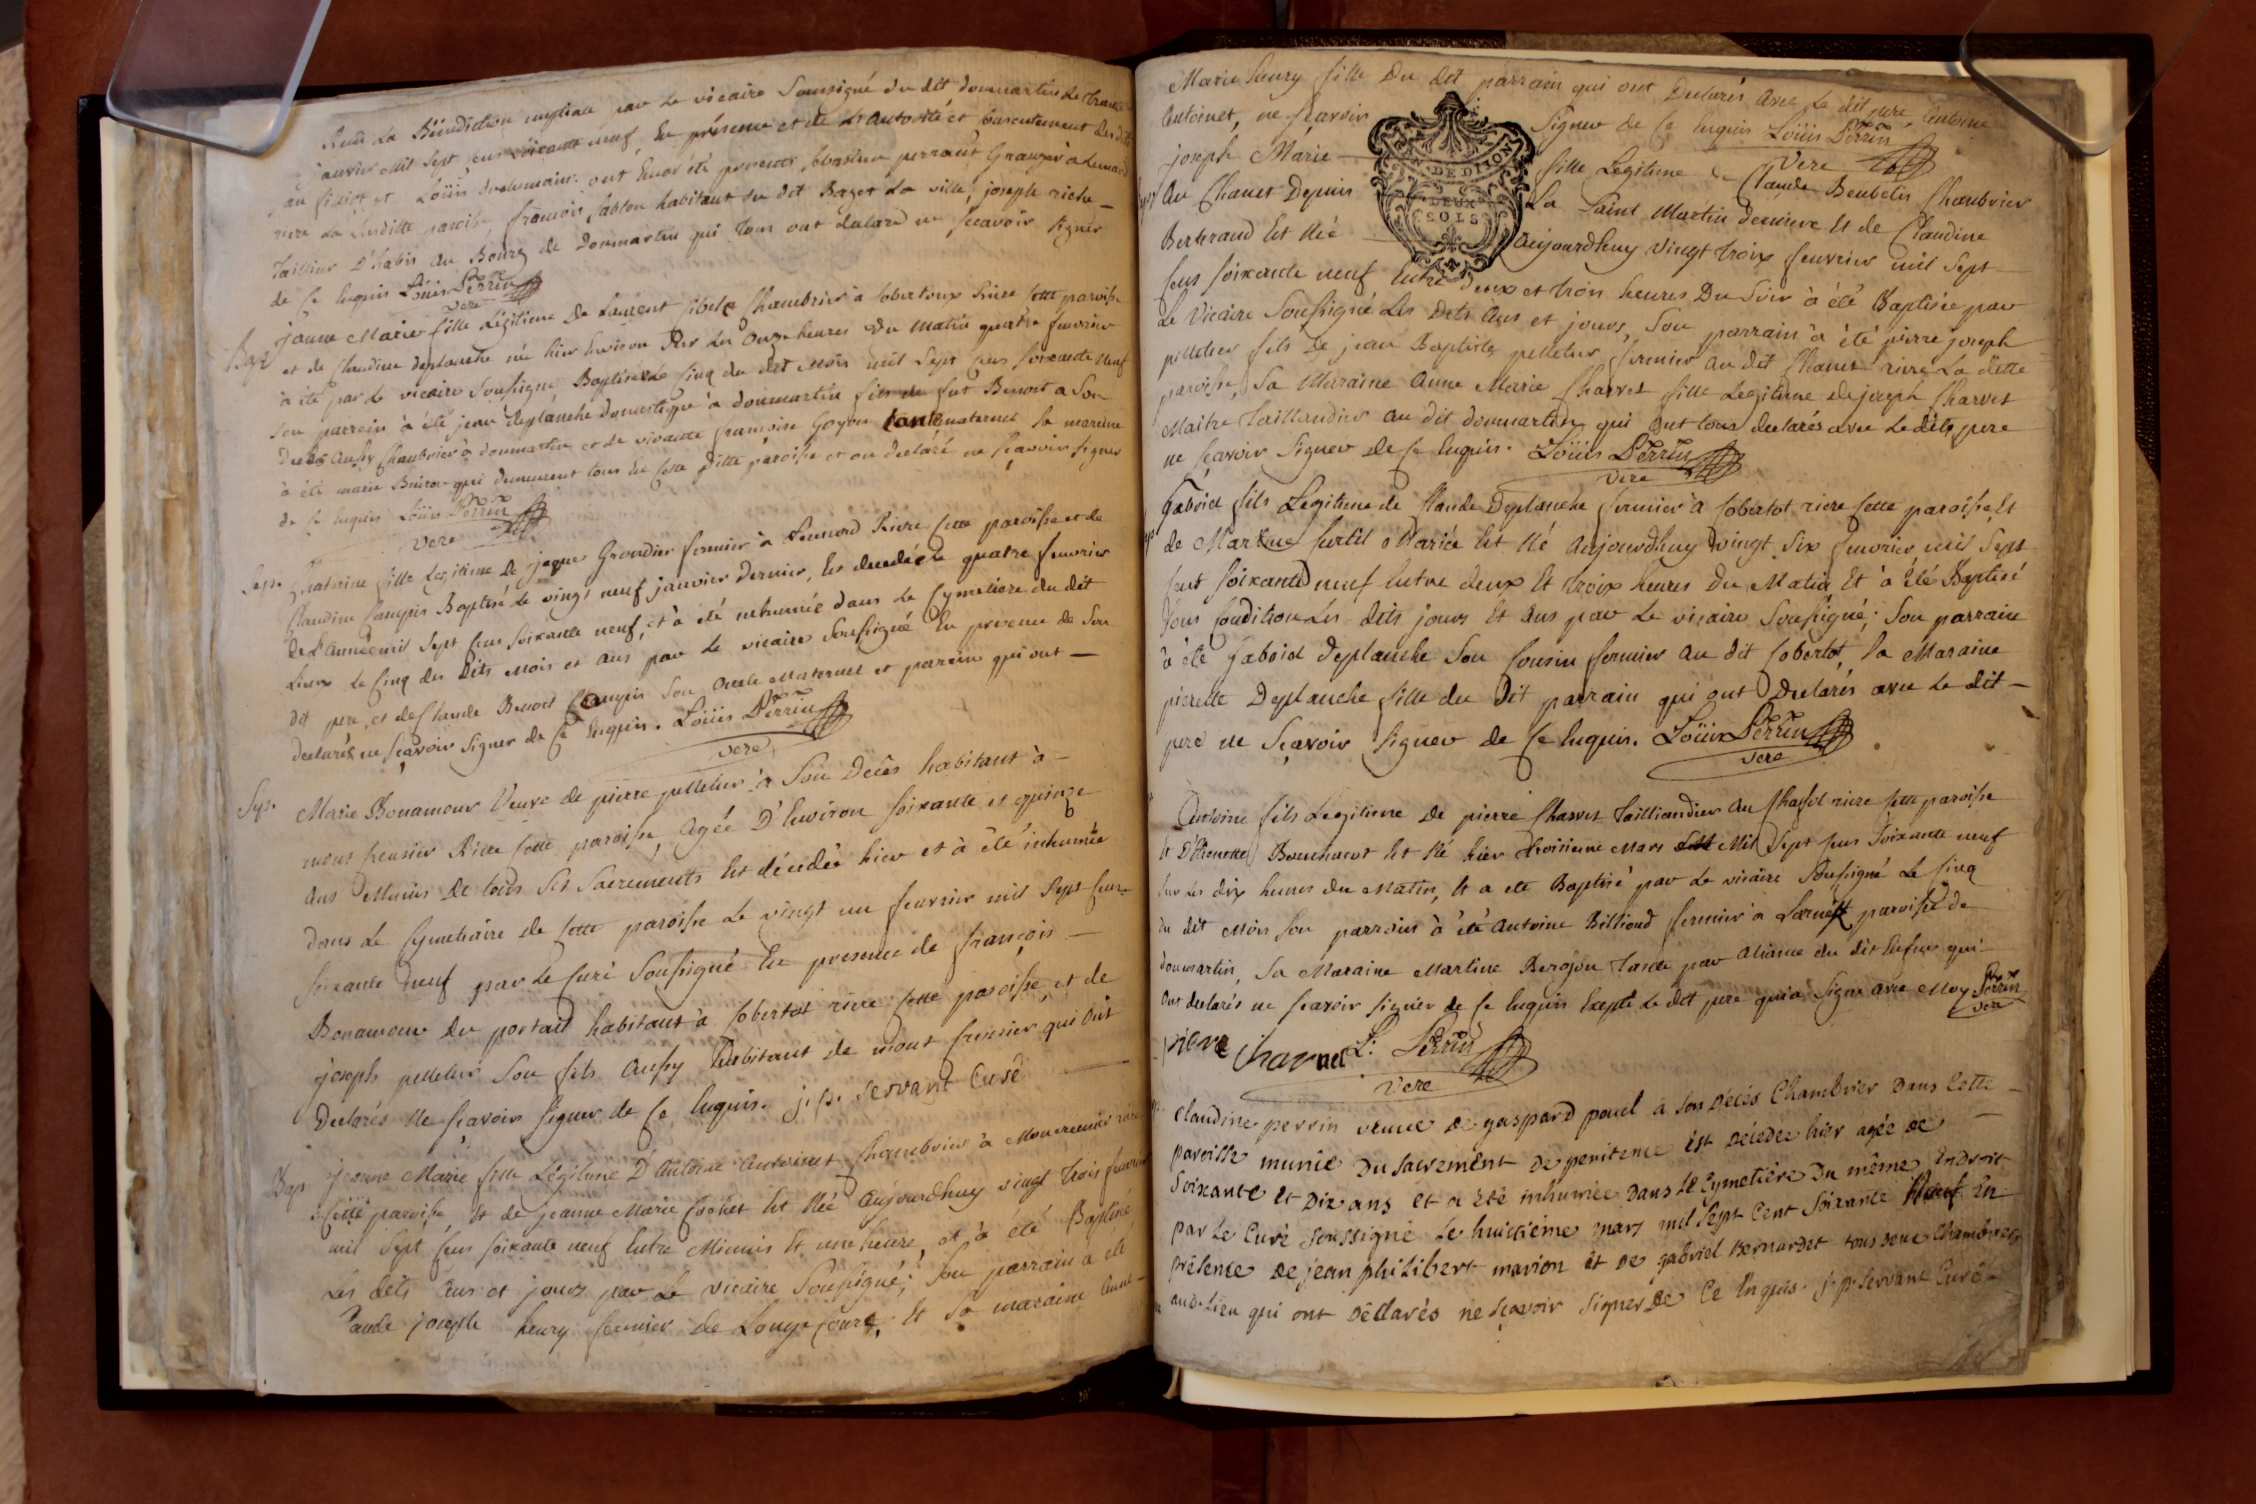 Recu La Bénédiction nuptiale par le vicaire Soussigné du dit donmartin Le trente
janvier mil Sept cens soixante neuf, En présence et de L'autorité et consentement des dits
ont Encor été presents Sebastien perraut Granger à
riere La Susditte paroisse, françois sablon habitant du dit Baget La ville, joseph riche
Tailleur D'habis au Bourg de donmartin qui Tous ont déclaré ne sçavoir signer
de Ce Enquis Loüis Perrin
Vere
Bap
jeanne Marie fille Légitime de Laurent chambrier à Cobertoux riere cette paroisse
et de Claudine deplanche née hier Environ Sur Les Onze heures du Matin quatre fevrier
à été par le vicaire Soussigné Baptisée Le Cinq du dit Mois mil Sept cens soixante Neuf
Son parrein à été jean deplanche domestique à donmartin fils de fut Benoit a Son
decés aussy Chambrier à donmartin et de vivante françoise Goyon tante maternel Sa mareine
à été marie qui demeurent tous En cette ditte paroisse et on declaré ne Sçavoir signer
de Ce enquis Loüis Perrin
Vere
Sep.
fille Legitime de jaque Grondier fermier à Riere Cette paroisse et de
Claudine Campin Baptisé Le vingt neuf janvier dernier, Est decedée le quatre fevrier
De L'année mil Sept Cens Soixante neuf, et à été inhumée dans Le Cymetiere du dit
Lieux Le Cinq des Dits Mois et ans par le vicaire Soussigné En presence de Son
dit pere, et de Claude Benoit Campin Son Oncle Maternel et parein qui ont —
declarés ne sçavoir signer de Ce Enquis. Loüis Perrin
Vere
Sep.
Marie Bonamour Veuve de pierre pelletier à Son Decès habitant à —
mont frenier Riere Cette paroisse, Agée D'Environ soixante et quinze
ans Munis de tous Ses Sacrements Est décédée hier et à été inhumée
dans Le Cymetiaire de cette paroisse Le vingt un fevrier mil Sept Cens
soixante neuf par Le Curé Soussigné En presence de françois —
Bonamour du portail habitant à Cobertot riere Cette paroisse, et de
joseph pelletier Son fils Aussy habitant de mont frenier qui Ont
Declarés Ne sçavoir signer de Ce Enquis. j. p. Servant Curé
Bap
jeanne Marie fille Légitime D'Antoine Antoinet Chambrier à riere
Cette paroisse, Et de jeanne Marie Cochet Est Née Aujourdhuy vingt Trois fevrier
mil Sept Cens soixante neuf Entre Minuit Et une heure, et à été Baptisée
Les dits Ans et jours par Le Vicaire Soussigné; Son parrain à été
joseph henry fermier de Et Sa maraine Anne
Marie henry fille Du dit parrain qui ont Declarés Avec Le dit pere, Antoine
Antoinet, ne sçavoir Signer de Ce Enquis Loüis Perrin
Vere
DE DIJON
DEUX
SOLS
joseph Marie — fille Legitime de Claude Beubelin Chambrier
Au Chanet Depuis La Saint Martin derniere Et de Claudine
Bertrand Est Née — Aujourdhuy vingt Trois fevrier mil Sept
Cens soixante neuf Entre Deux et trois heures Du Soir à été Baptisée par
Le Vicaire Soussigné Les Dits Ans et jours, Son parrain à été pierre joseph
pelletier fils de jean Baptiste pelletier fermier Au dit Chanet riere La ditte
paroisse, Sa Maraine Anne Marie Charvet fille Legitime de joseph Charvet
Maitre Taillandier au dit donmartin qui ont tous declarés avec Le dite pere
ne sçavoir signer de Ce Enquis. Loüis Perrin
Vere
Gabriel fils Legitime de Claude Deplanche fermier à Cobertot riere Cette paroisse, Et
de Martine furtil Mariée Est Né Aujourdhuy vingt Six fevrier mil Sept
Cent soixante neuf Entre deux Et trois heures du Matin, Et à été Baptisé
Sous Condition Les dits jours Et Ans par Le vicaire Soussigné; Son parrain
à été Gabriel Deplanche Son Cousin fermier Au dit Cobertot, Sa Maraine
pierette Deplanche fille du Dit parrain qui ont Declarés avec Le dit —
pere ne Sçavoir signer de Ce Enquis. Loüis Perrin
Vere
Antoine fils Legitime de pierre Charvet Tailliandier Au riere cette paroisse
Et Est Né hier Troisieme Mars Mil Sept Cens Soixante neuf
Sur Les dix heures du Matin, Et a été Baptisé par Le vicaire Soussigné Le Cinq
du dit Mois Son parrain à été Antoine Billioud fermier à paroisse de
donmartin, Sa Maraine Martine Berojon Tante par Aliance du dit Enfant qui
Ont declarés ne sçavoir signer de Ce Enquis Exepté Le dit pere qui a Signé avec Moy Perrin
Vere
pierre Charvet L. Perrin
Vere
Claudine perrin veuve de gaspard à son décés Chambrier Dans Cette
paroisse munie Du sacrement De penitence est Décédée hier agée De —
Soixante et Dix ans et a été inhumée Dans Le Cymetiére Du même Endroit
par Le Curé Soussigné Le huitiéme mars mil Sept Cent Soixante Neuf En
présence De jean philibert marion et De gabriel Bernardet tous deux Chambriers
aud. Lieu qui ont Déclarés ne sçavoir signer De Ce Enquis. j. p. Servant Curé